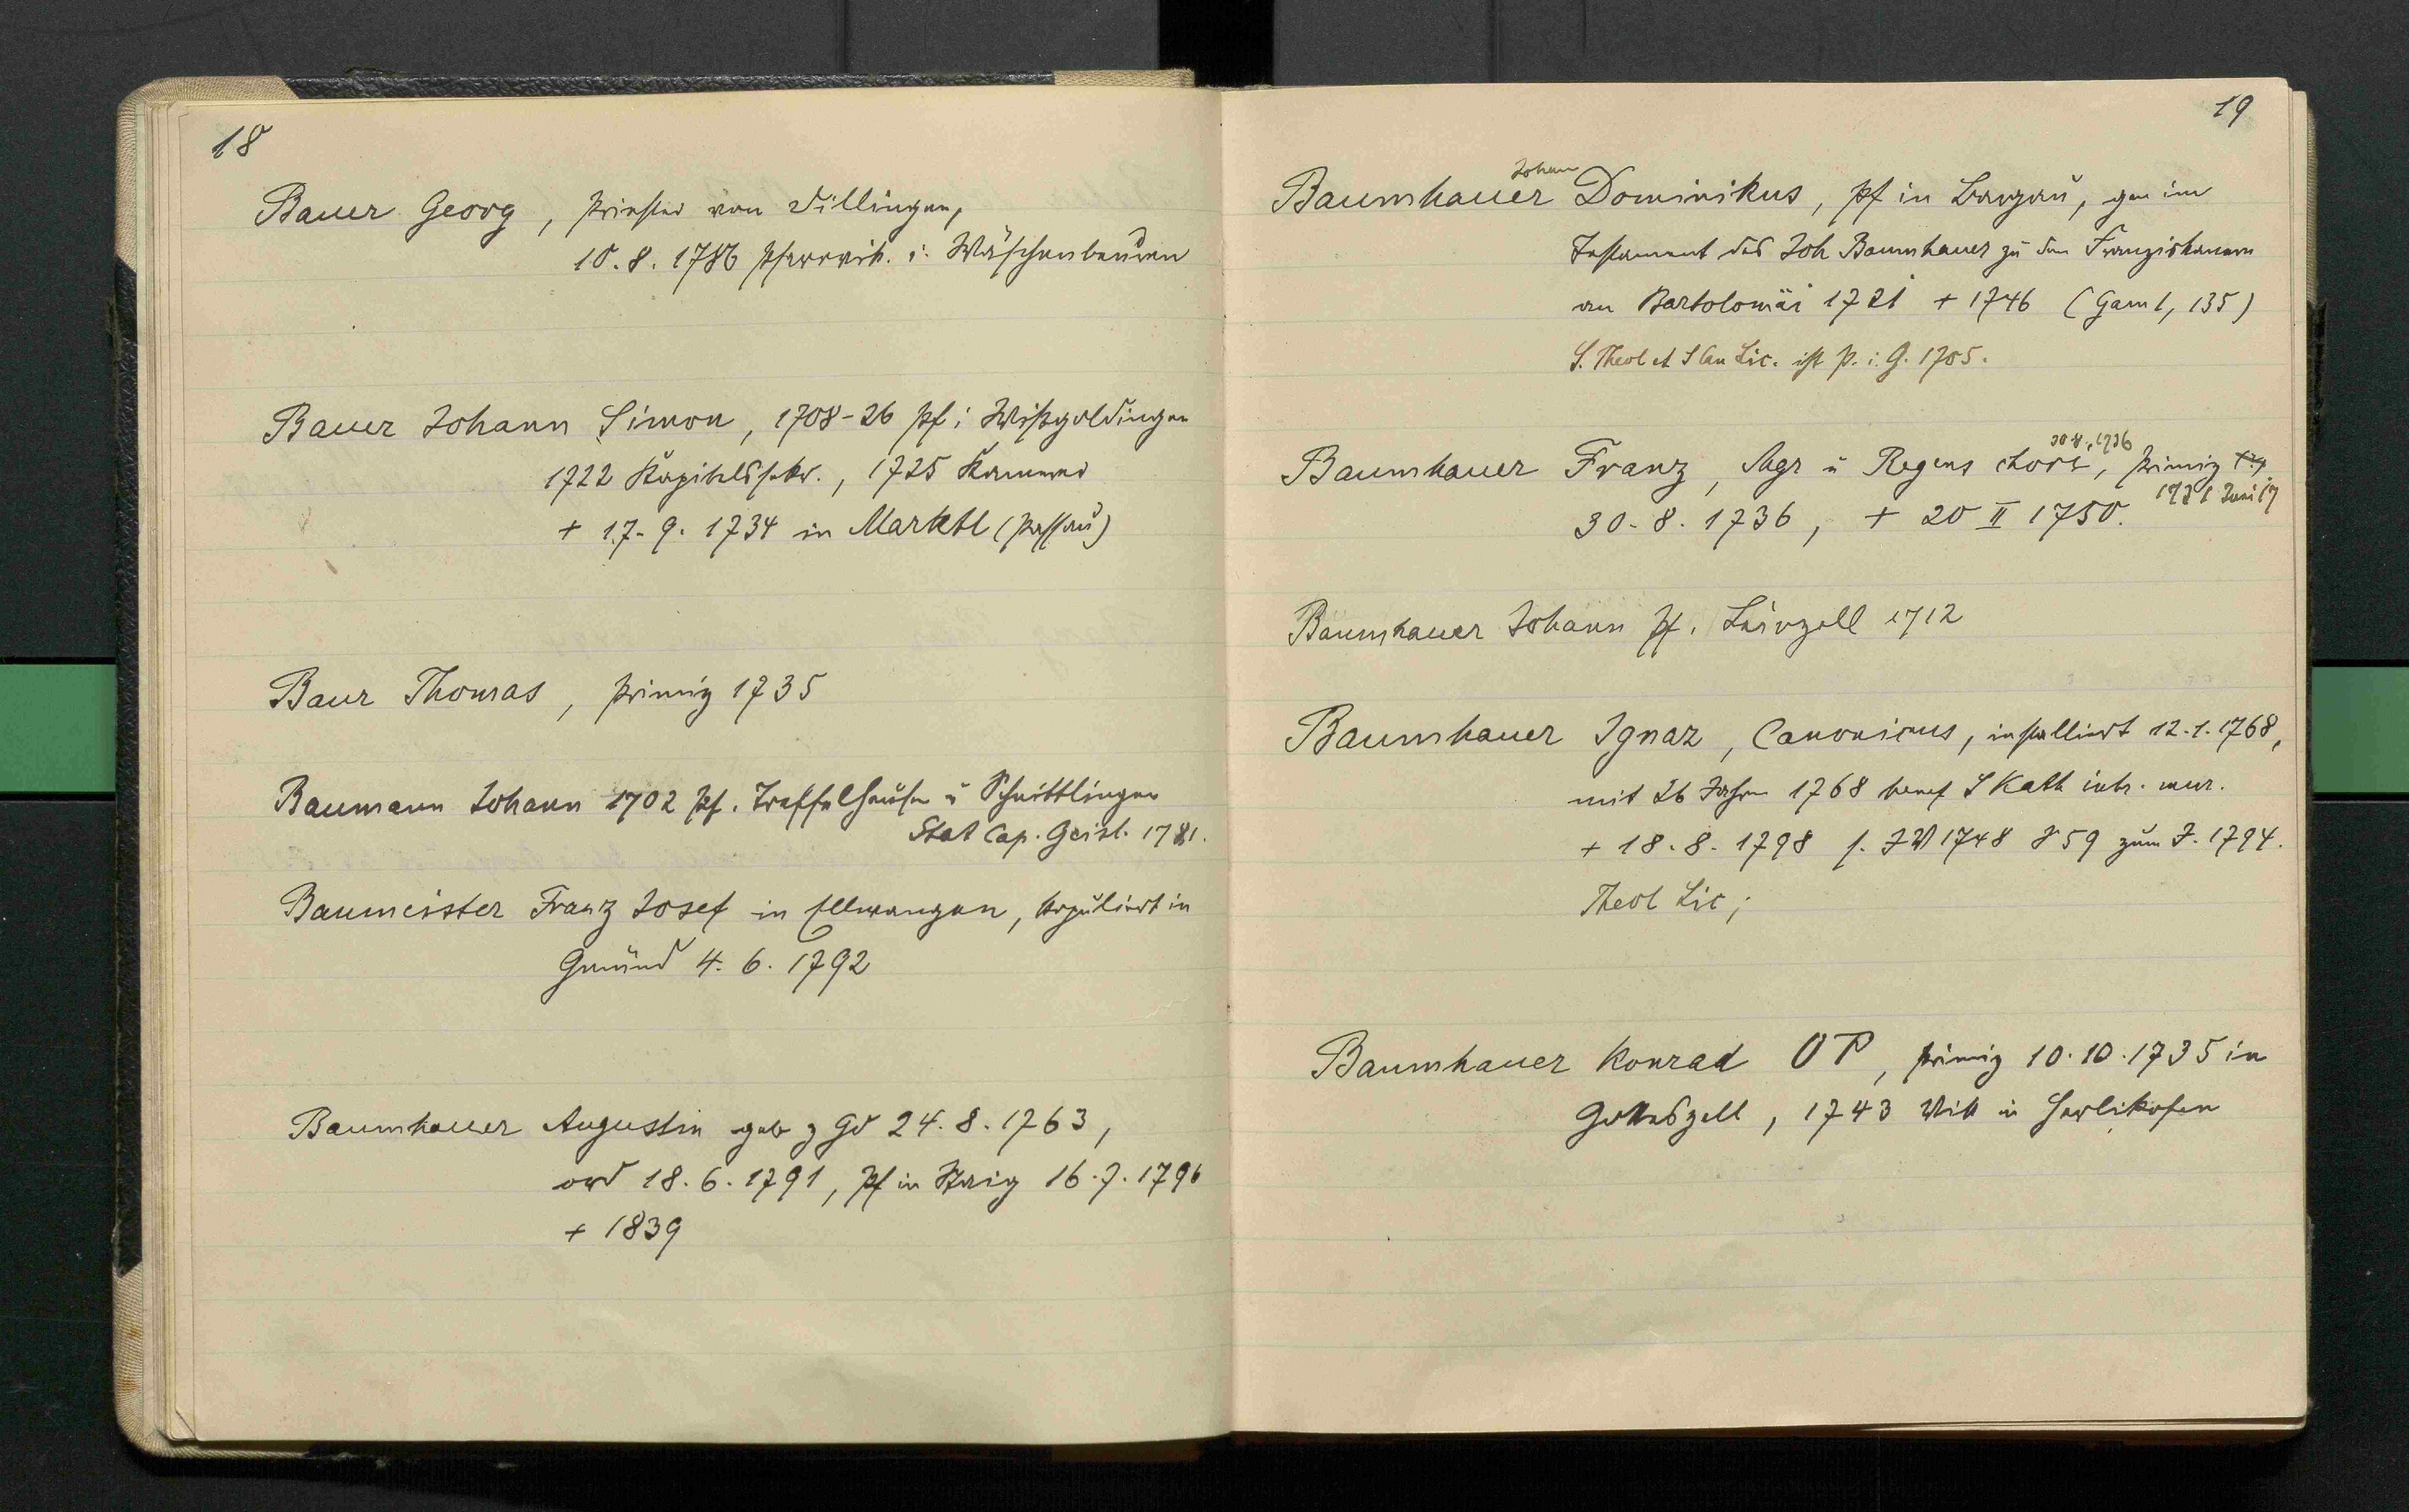 18
Bauer Georg, Priester von Dillingen,
10.8.1786 Pfarrvik. i. Wäschenbeuren
Bauer Johann Simon, 1708-26 Pf i Wißgoldingen
1722 Kapitelssekr., 1725 Kammerer
+ 17.9.1734 in Marktl (Passau)
Baur Thomas, Primiz 1735
Baumann Johann 1702 Pf. Treffelhausen u Schnittlingen
Stat Cap. Geisl. 1781.
Baumeister Franz Josef in Ellwangen, kopuliert in
Gmünd 4.6.1792
Baumhauer Augustin geb z Gd 24.8.1763,
ord 18.6.1791, Pf in 16.7.1796
+ 1839
19
Johann
Baumhauer Dominikus, Pf in Bargau, gen im
Testament des Joh Baumhauer zu den Franziskanern
an Bartolomäi 1721 + 1746 (Gam 1, 135)
S. Theol et S Can Lic. ist P. i. G. 1705.
30.8.1736
Baumhauer Franz, Sgr u Regens chori, Primiz
1721 Juni 17
30.8.1736, + 20 II 1750.
Baumhauer Johann Pf. Leinzell 1712
Baumhauer Ignaz, Canonicus, installiert 12.1.1768,
mit 26 Jahren 1768 benef S Kath intr. mur.
+ 18.8.1798 s. 1748 59 zum J. 1794.
Theol Lic;
Baumhauer Konrad OP, Primiz 10.10.1735 in
Gotteszell, 1743 Vik in Herlikofen